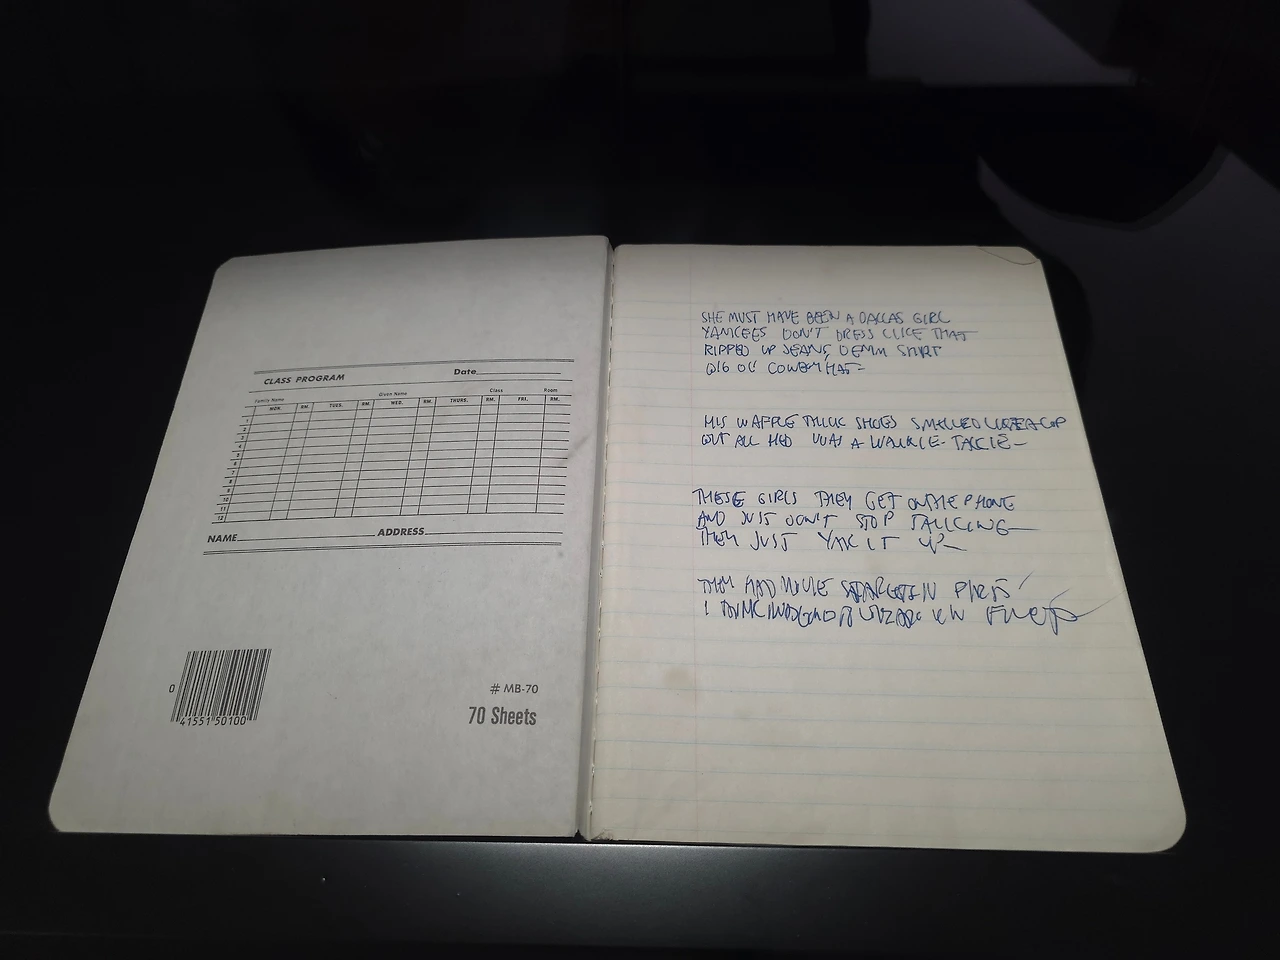 CLASS PROGRAM Date
Family Name Given Name Class Room
MON. RM. TUES. RM. WED. RM. THURS. RM. FRI. RM.
1
2
3
4
5
6
7
8
9
10
11
12
NAME ADDRESS
0 41551 50100
# MB-70
70 Sheets
SHE MUST HAVE BEEN A DALLAS GIRL
YANKEES DON'T DRESS LIKE THAT
RIPPED UP JEANS, DENIM SHIRT
BIG OL COWBOY HAT-
HIS WAFFLE THICK SHOES SMELLED LIKE A COP
BUT ALL HED WAS A WALKIE-TALKIE-
THESE GIRLS THEY GET ON THE PHONE
AND JUST DON'T STOP TALKING-
THEY JUST YAK IT UP-
THEY HAD
I THINK